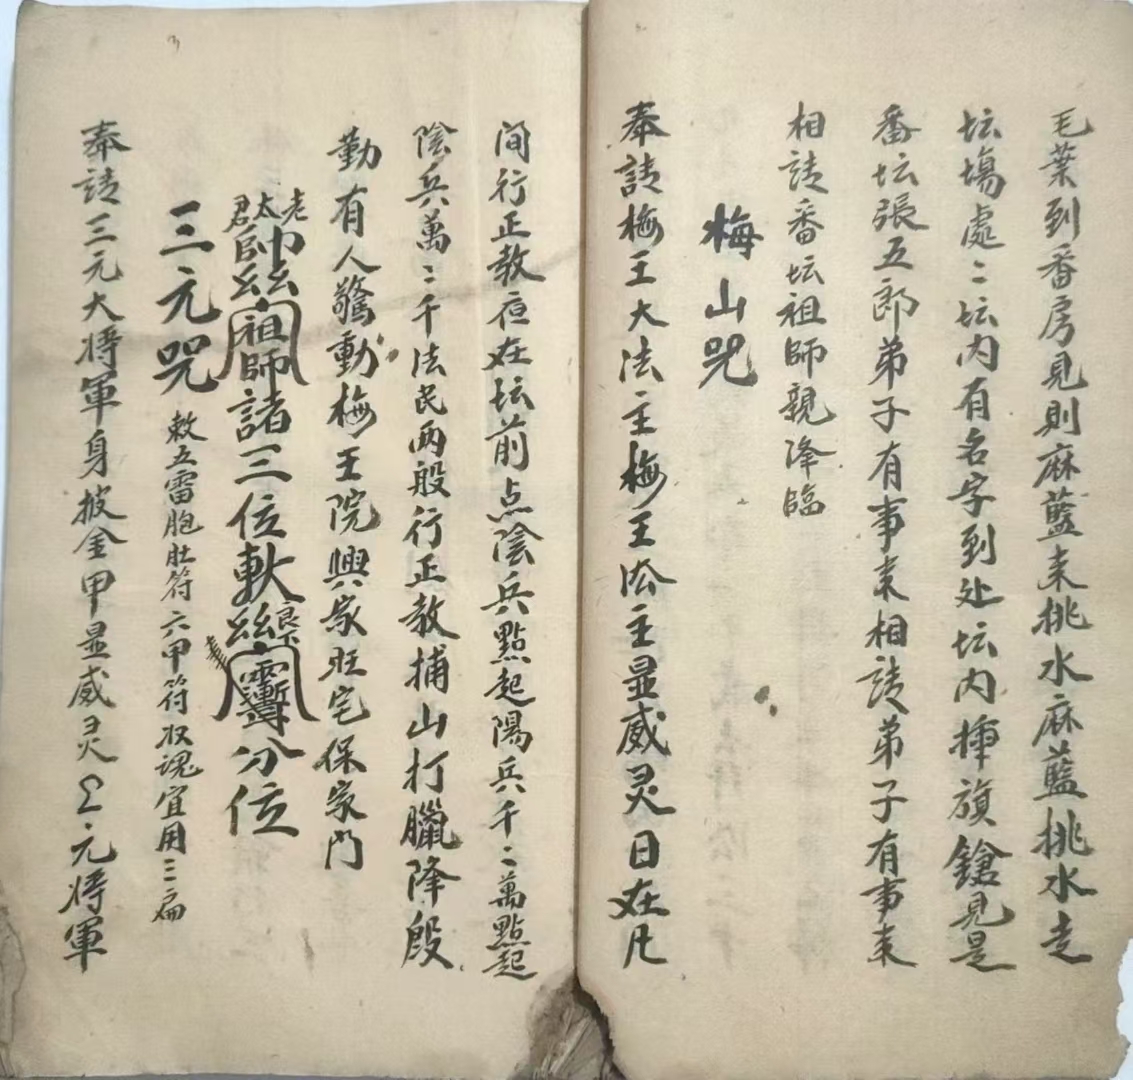 毛葉到畨房見則麻藍来挑水麻藍挑水走
坛塲處〻坛内有名字到处坛内揷旗鎗見是
畨坛張五郎弟子有事来相請弟子有事来
相請畨坛祖師親降臨
梅山咒
奉請梅王大法主梅王法主显威灵日在凡
间行正教夜在坛前点陰兵點起陽兵千〻萬點起
陰兵萬〻千法民两般行正教捕山打臘降殿
勤有人驚動梅王院興家旺宅保家门
老太君帥祖師諸三位軟分位
三元咒 敕五雷胞肚符六甲符収魂宜用三扁
奉請三元大将軍身披金甲显威灵元将軍